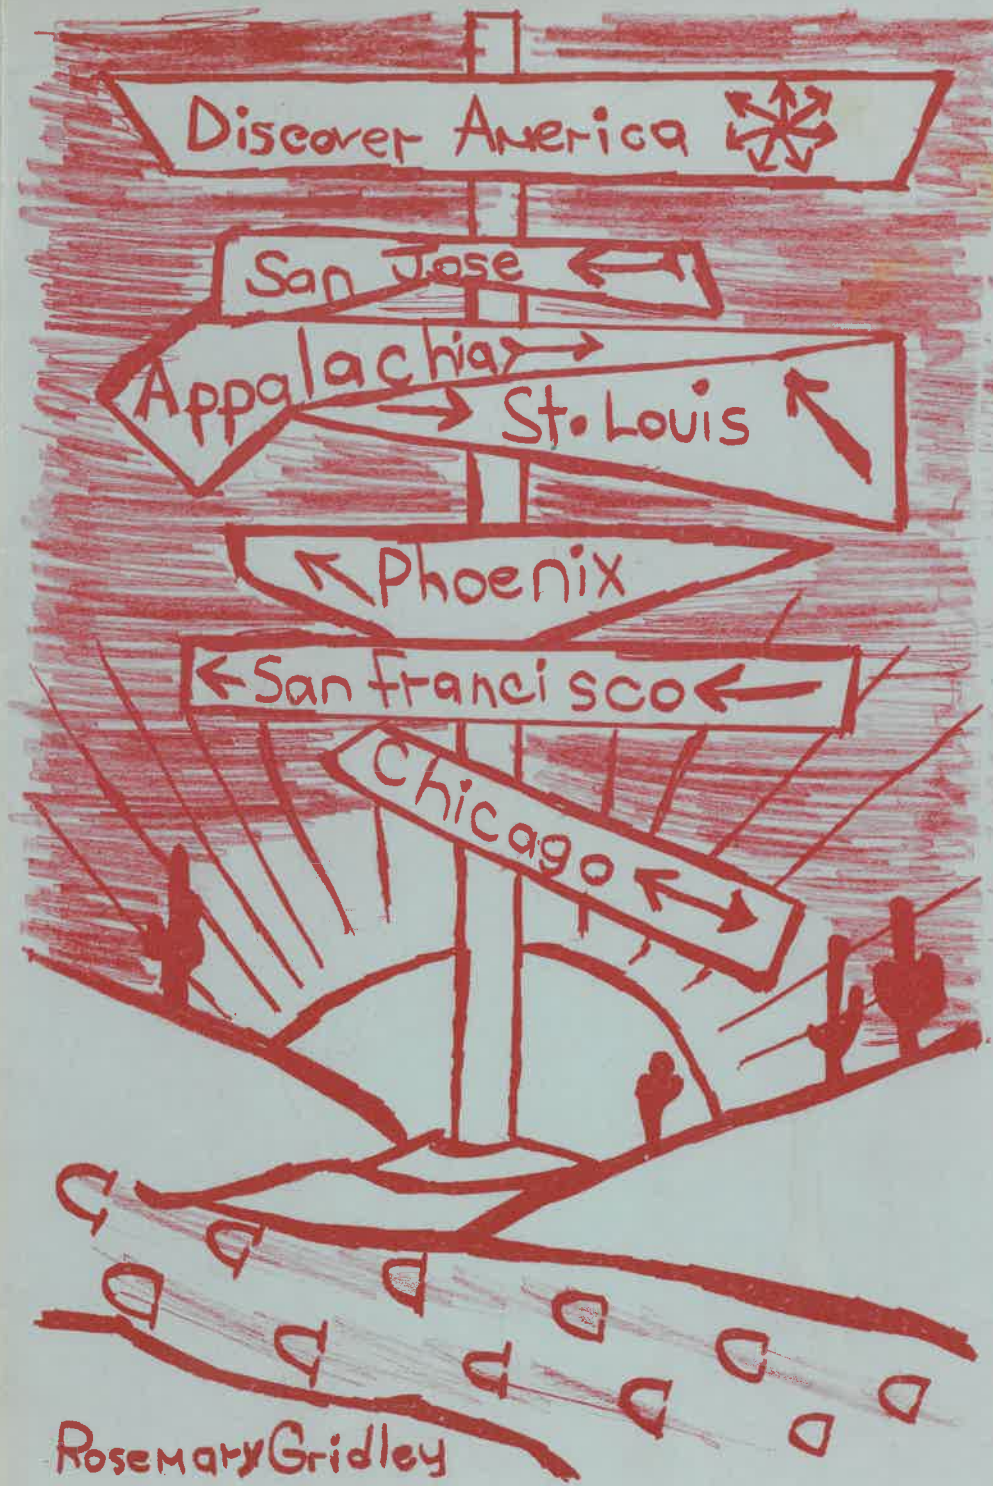 Discover America
San Jose
Appalachia
St. Louis
Phoenix
San francisco
Chicago
Rosemary Gridley